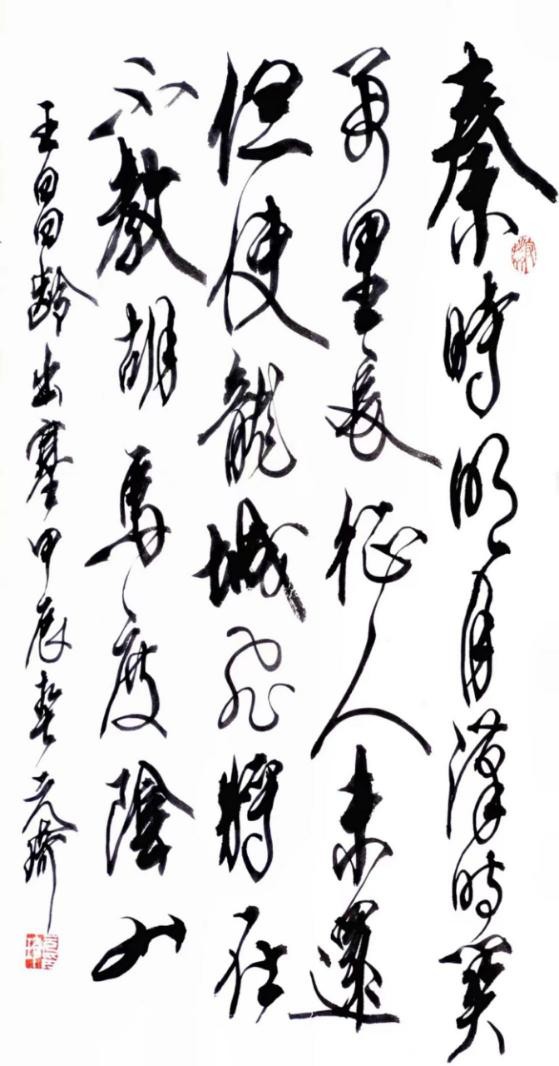 秦時明月漢時关
萬里長征人未還
但使龍城飛將在
不教胡馬度陰山
王昌齡出塞甲辰春